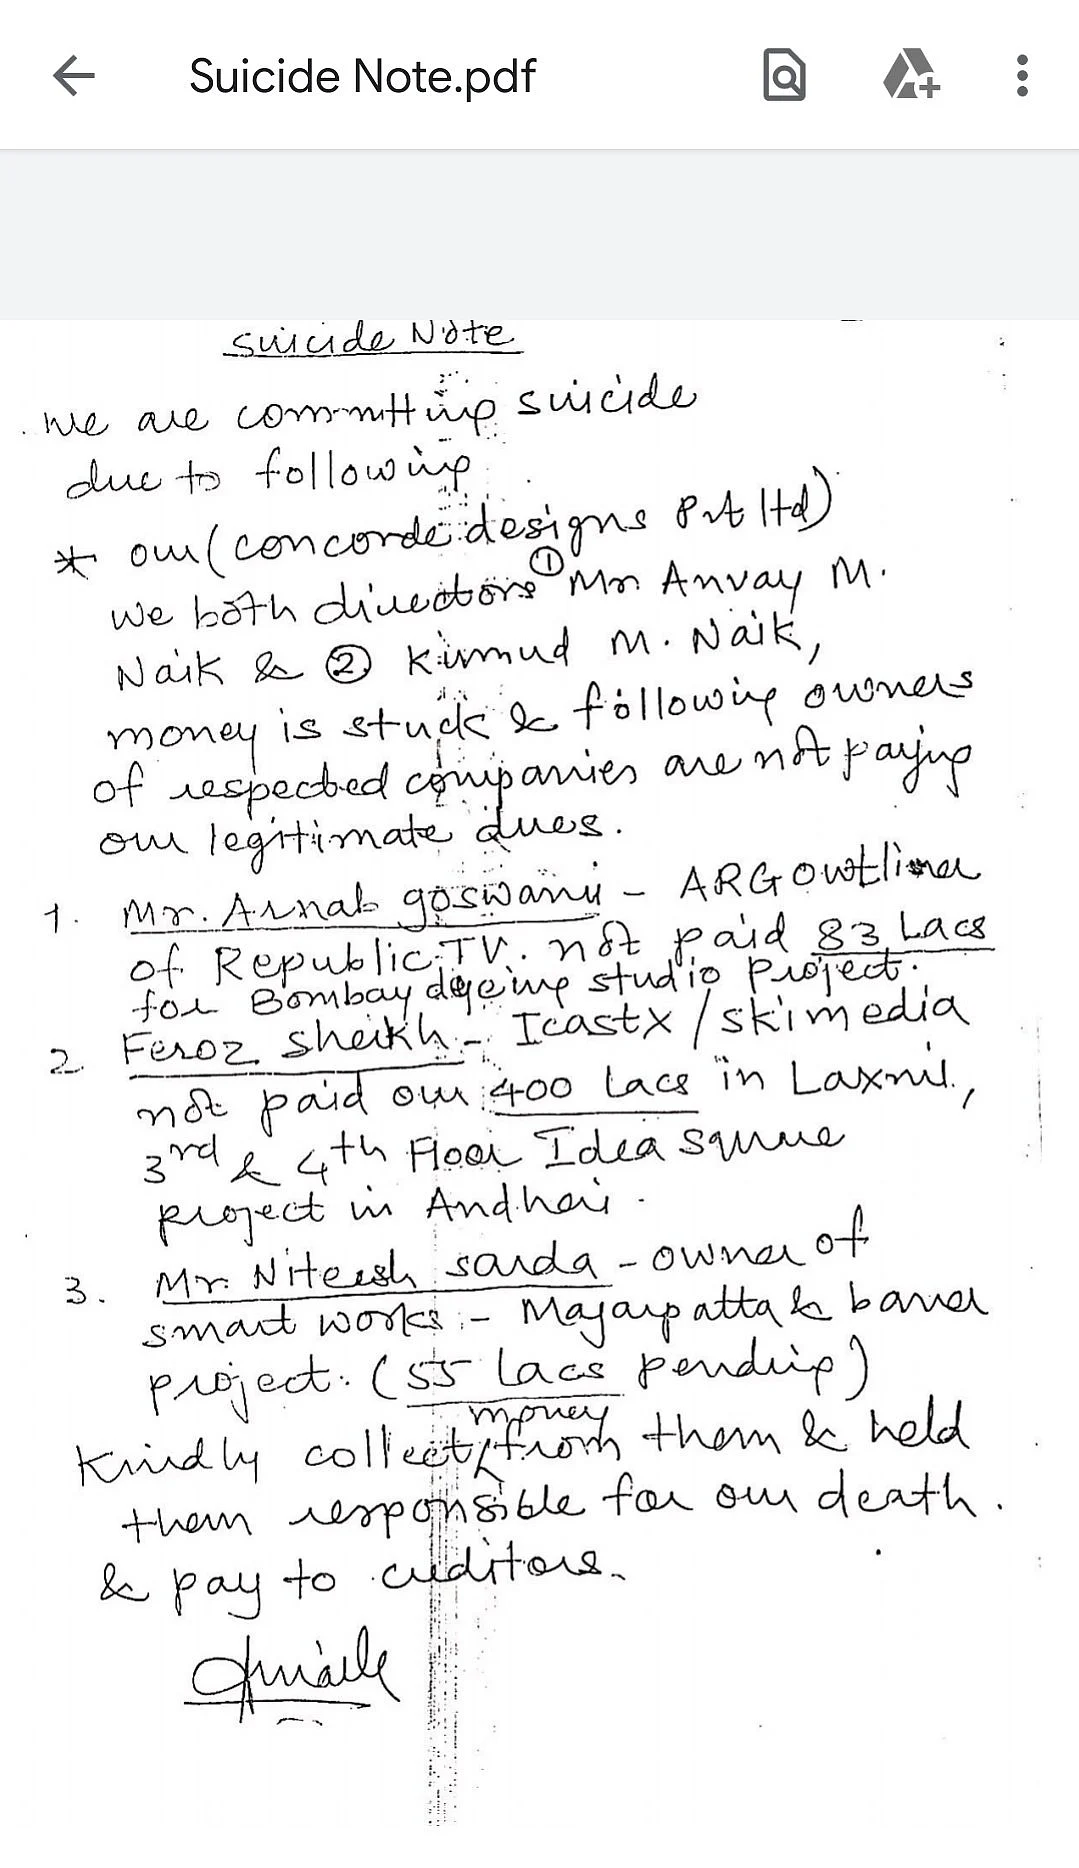 Suicide Note.pdf
suicide Note
we are committing suicide
due to following
* our (concorde designs Pvt ltd)
we both directors ① Mr. Anvay M.
Naik & ② Kumud M. Naik,
money is stuck & following owners
of respected companies are not paying
our legitimate dues.
1. Mr. Arnab goswami - ARG Outlier
of Republic TV. not paid 83 Lacs
for Bombay dyeing studio Project.
2 Feroz sheikh - Icastx / skimedia
not paid our 400 Lacs in Laxmi,
3rd & 4th Floor Idea square
project in Andheri.
3. Mr. Niteesh sarda - owner of
smart works :- Magarpatta & baner
project. (55 Lacs pending)
money
Kindly collect from them & held
them responsible for our death.
& pay to creditors.